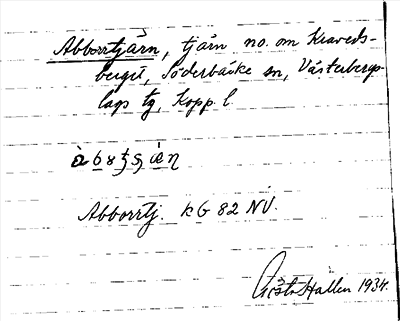 Abborrtjärn, tjärn no. om Kraveds-
berget, Söderbärke sn, Västerbergs-
lags tg, Kopp. l.
Abborrtj. KG 82 NV.
Gösta Hallén 1934.